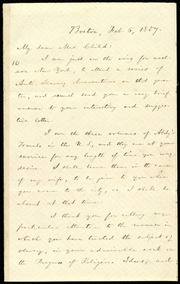 Boston, Feb. 6, 1857.
My dear Mrs. Child:
I am just on the wing for west-
ern New York, to attend a series of
Anti-Slavery Conventions in that quar-
ter, and must send you a very brief
answer to your interesting and sugges-
tive letter.
I have the three volumes of Abdy's
Travels in the U. S., and they are at your
service for any length of time you may
desire. I shall leave them in the care
of my wife, to be given to you when
you come to the city, as I shall be
absent at that time.
I thank you for calling my
particular attention to the manner in
which you have treated the subject of
slavery, in your admirable work on
the Progress of Religious Ideas, and